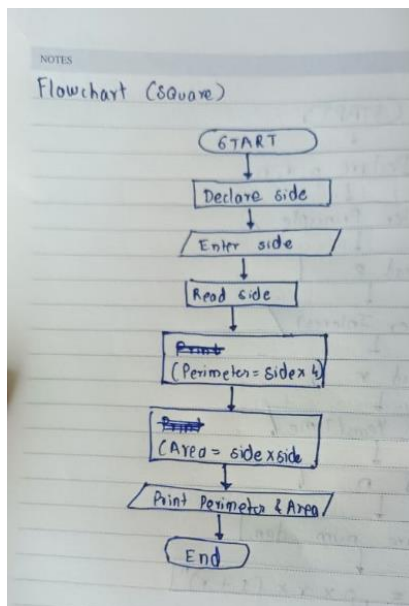 NOTES
Flowchart (Square)
START
Declare side
Enter side
Read side
Print
(Perimeter = side x 4
Print
(Area = side x side
Print Perimeter & Area
End